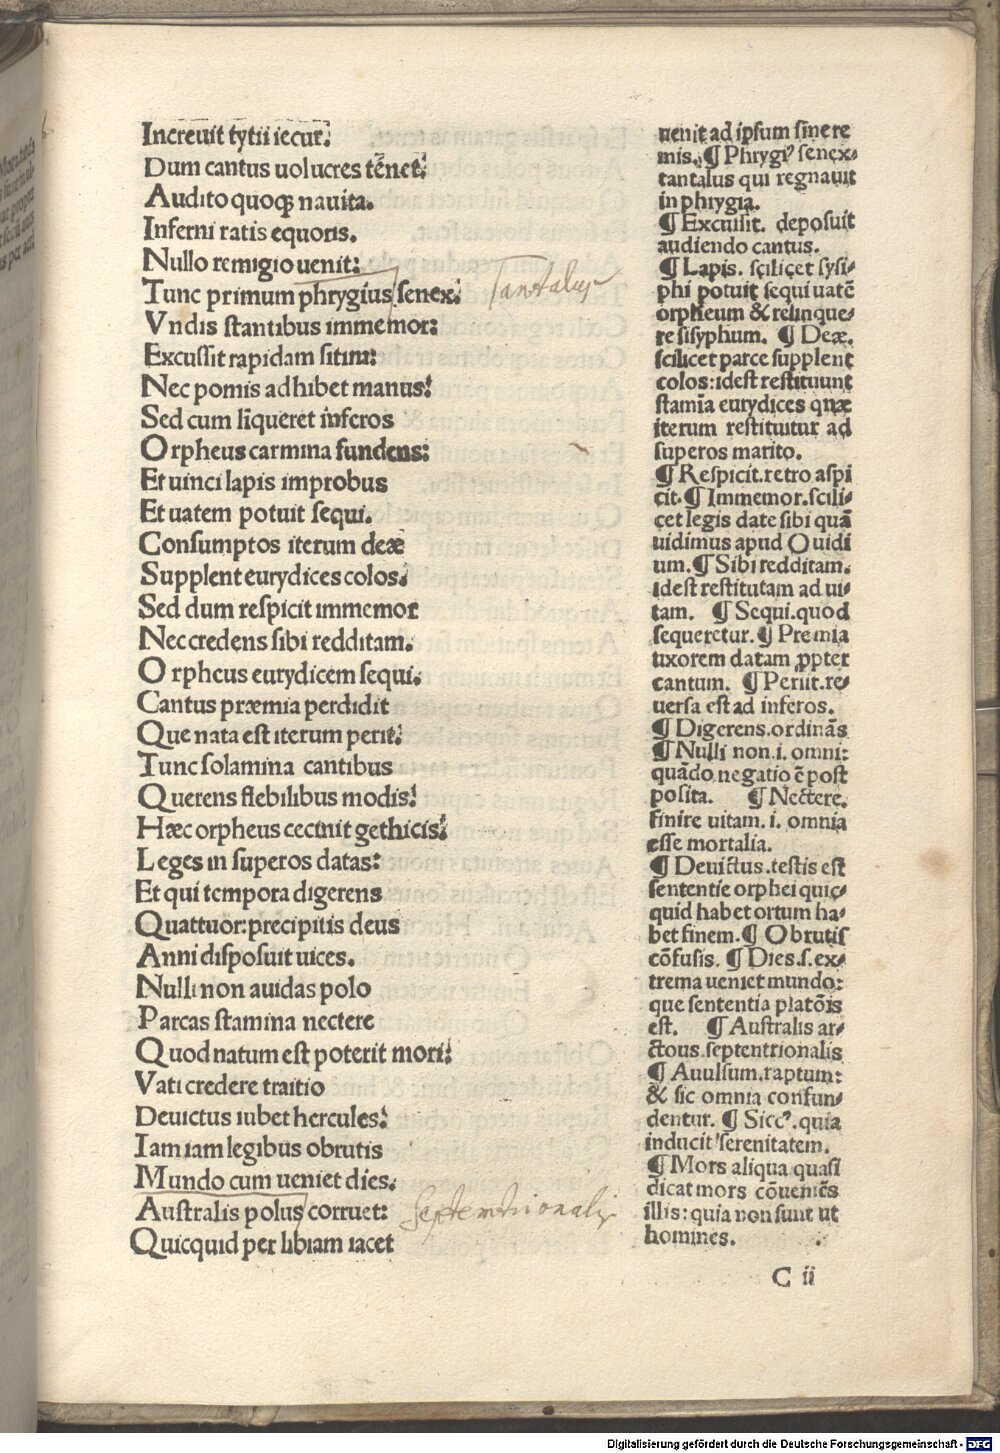 Increuit tytii iecur:
Dum cantus uolucres tēnet:
Audito quoqꝫ nauita.
Inferni ratis equoris.
Nullo remigio uenit:
Tunc primum phrygius senex: Tantalus
Vndis stantibus immemor:
Excussit rapidam sitim:
Nec pomis adhibet manus:
Sed cum liqueret inferos
Orpheus carmina fundens:
Et uinci lapis improbus
Et uatem potuit sequi.
Consumptos iterum deæ
Supplent eurydices colos:
Sed dum respicit immemor
Nec credens sibi redditam.
Orpheus eurydicem sequi:
Cantus præmia perdidit
Que nata est iterum perit:
Tunc solamina cantibus
Querens flebilibus modis:
Hæc orpheus cecinit gethicis:
Leges in superos datas:
Et qui tempora digerens
Quattuor: precipitis deus
Anni disposuit uices.
Nulli non auidas polo
Parcas stamina nectere
Quod natum est poterit mori:
Vati credere traitio
Deuictus iubet hercules:
Iam iam legibus obrutis
Mundo cum ueniet dies.
Australis polus corruet: Septemtrionalis
Quicquid per libiam iacet
uenit ad ipsum sine re
mis. ¶ Phrygiꝰ senex.
tantalus qui regnauit
in phrygia.
¶ Excussit. deposuit
audiendo cantus.
¶ Lapis. scilicet sysi-
phi potuit sequi uatē
orpheum & relinque-
re sisyphum. ¶ Deæ.
scilicet parce supplent
colos: idest restituunt
stamīa eurydices quæ
iterum restituitur ad
superos marito.
¶ Respicit. retro aspi
cit. ¶ Immemor. scili-
cet legis date sibi quā
uidimus apud Ouidi
um. ¶ Sibi redditam.
idest restitutam ad ui-
tam. ¶ Sequi. quod
sequeretur. ¶ Premia
uxorem datam ꝓpter
cantum. ¶ Periit. re-
uersa est ad inferos.
¶ Digerens. ordinās
¶ Nulli non. i. omni:
quādo negatio ē post
posita. ¶ Nectere.
finire uitam. i. omnia
esse mortalia.
¶ Deuictus. testis est
sententie orphei quic-
quid habet ortum ha-
bet finem. ¶ Obrutis
cōfusis. ¶ Dies. s. ex-
trema ueniet mundo:
que sententia platōis
est. ¶ Australis ar-
ctous. septentrionalis
¶ Auulsum. raptum:
& sic omnia confun-
dentur. ¶ Siccꝰ. quia
inducit serenitatem.
¶ Mors aliqua quasi
dicat mors cōueniēs
illis: quia non sunt ut
homines.
C ii
Digitalisierung gefördert durch die Deutsche Forschungsgemeinschaft - DFG